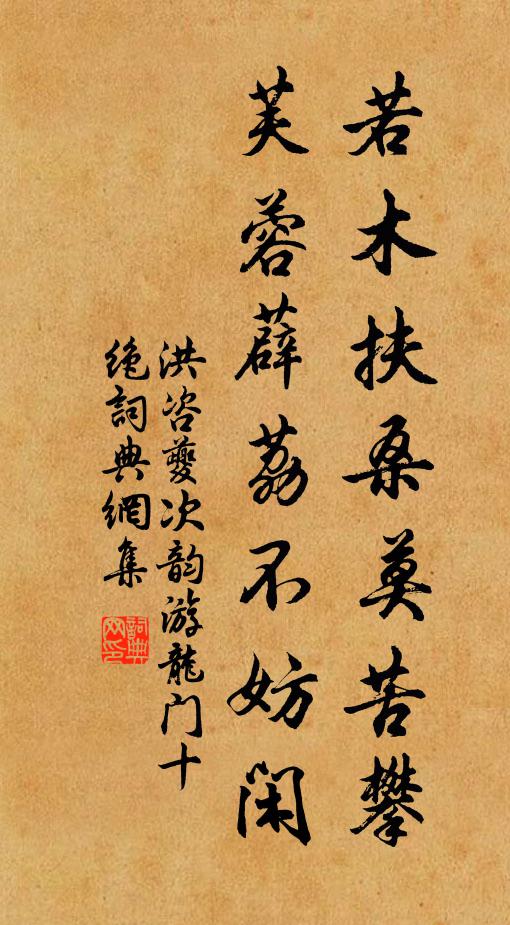 若木扶桑莫苦攀
芙蓉薜荔不妨闲
洪咨夔次韵游龍门十
绝詞典網集
詞典网印